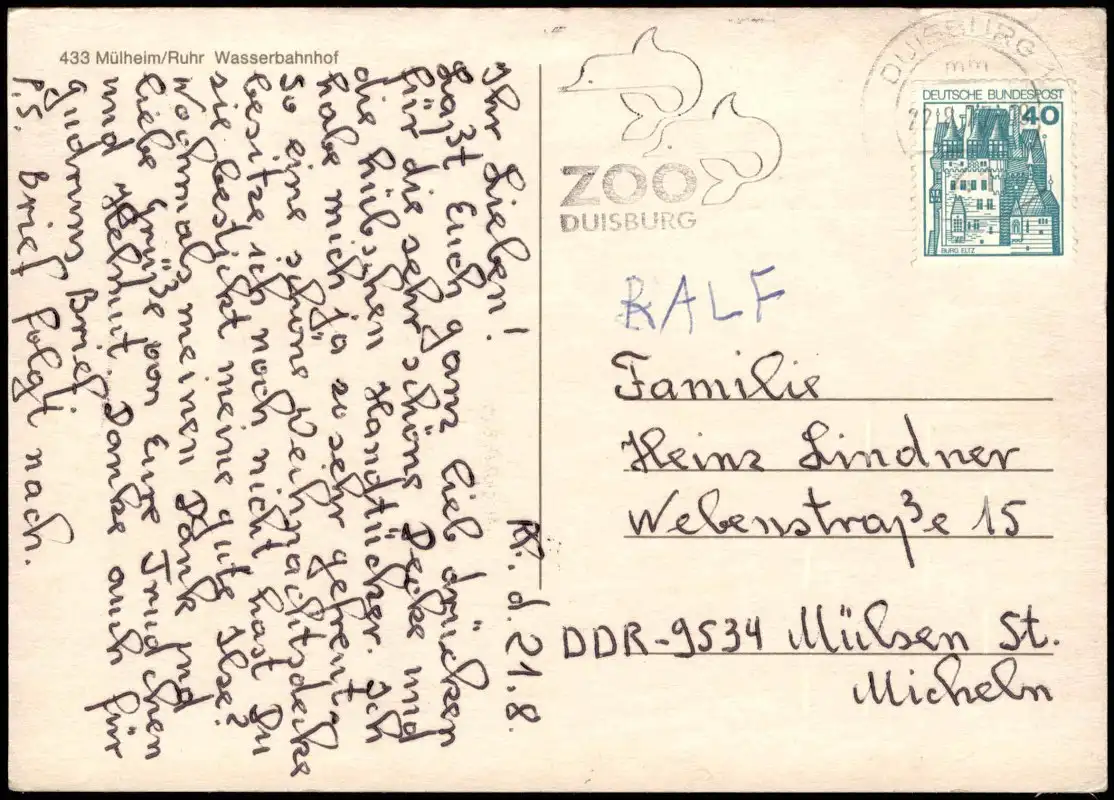 433 Mülheim/Ruhr Wasserbahnhof
d. 21.8.
Ihr Lieben!
Laßt Euch ganz lieb drücken
für die sehr schöne Decke und
die hübschen Handtücher. Ich
habe mich ja so sehr gefreut.
So eine schöne Weihnachtsdecke
besitze ich noch nicht, hast Du
sie bestickt meine gute Ilse?
Nochmals meinen Dank und
liebe Grüße von Eure Trudchen
und Helmut. Danke auch für
Gudruns Brief.
P.S. Brief folgt nach.
ZOO
DUISBURG
DUISBURG
mm
DEUTSCHE BUNDESPOST
40
BURG ELTZ
RALF
Familie
Heinz Lindner
Webenstraße 15
DDR-9534 Mülsen St.
Micheln